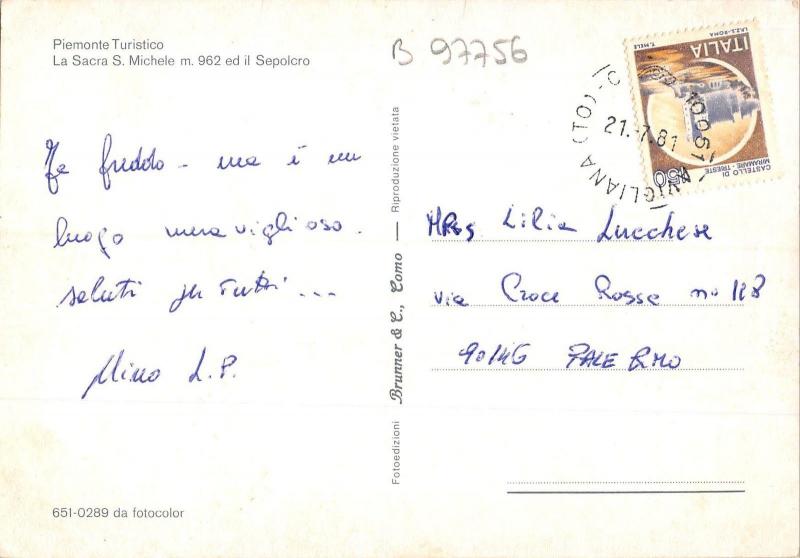 Piemonte Turistico
La Sacra S. Michele m. 962 ed il Sepolcro
B 97756
Fa freddo - ma è un
luogo meraviglioso.
saluti per tutti ...
Mino L.P.
651-0289 da fotocolor
Fotoedizioni Brunner & C., Como — Riproduzione vietata
LAZZ-ROMA T. MELE
ITALIA
CASTELLO DI
MIRAMARE - TRIESTE
450
AVIGLIANA (TO)
21.-7.81
10051
Lilia Lucchese
via Croce Rossa no 118
90146 PALERMO